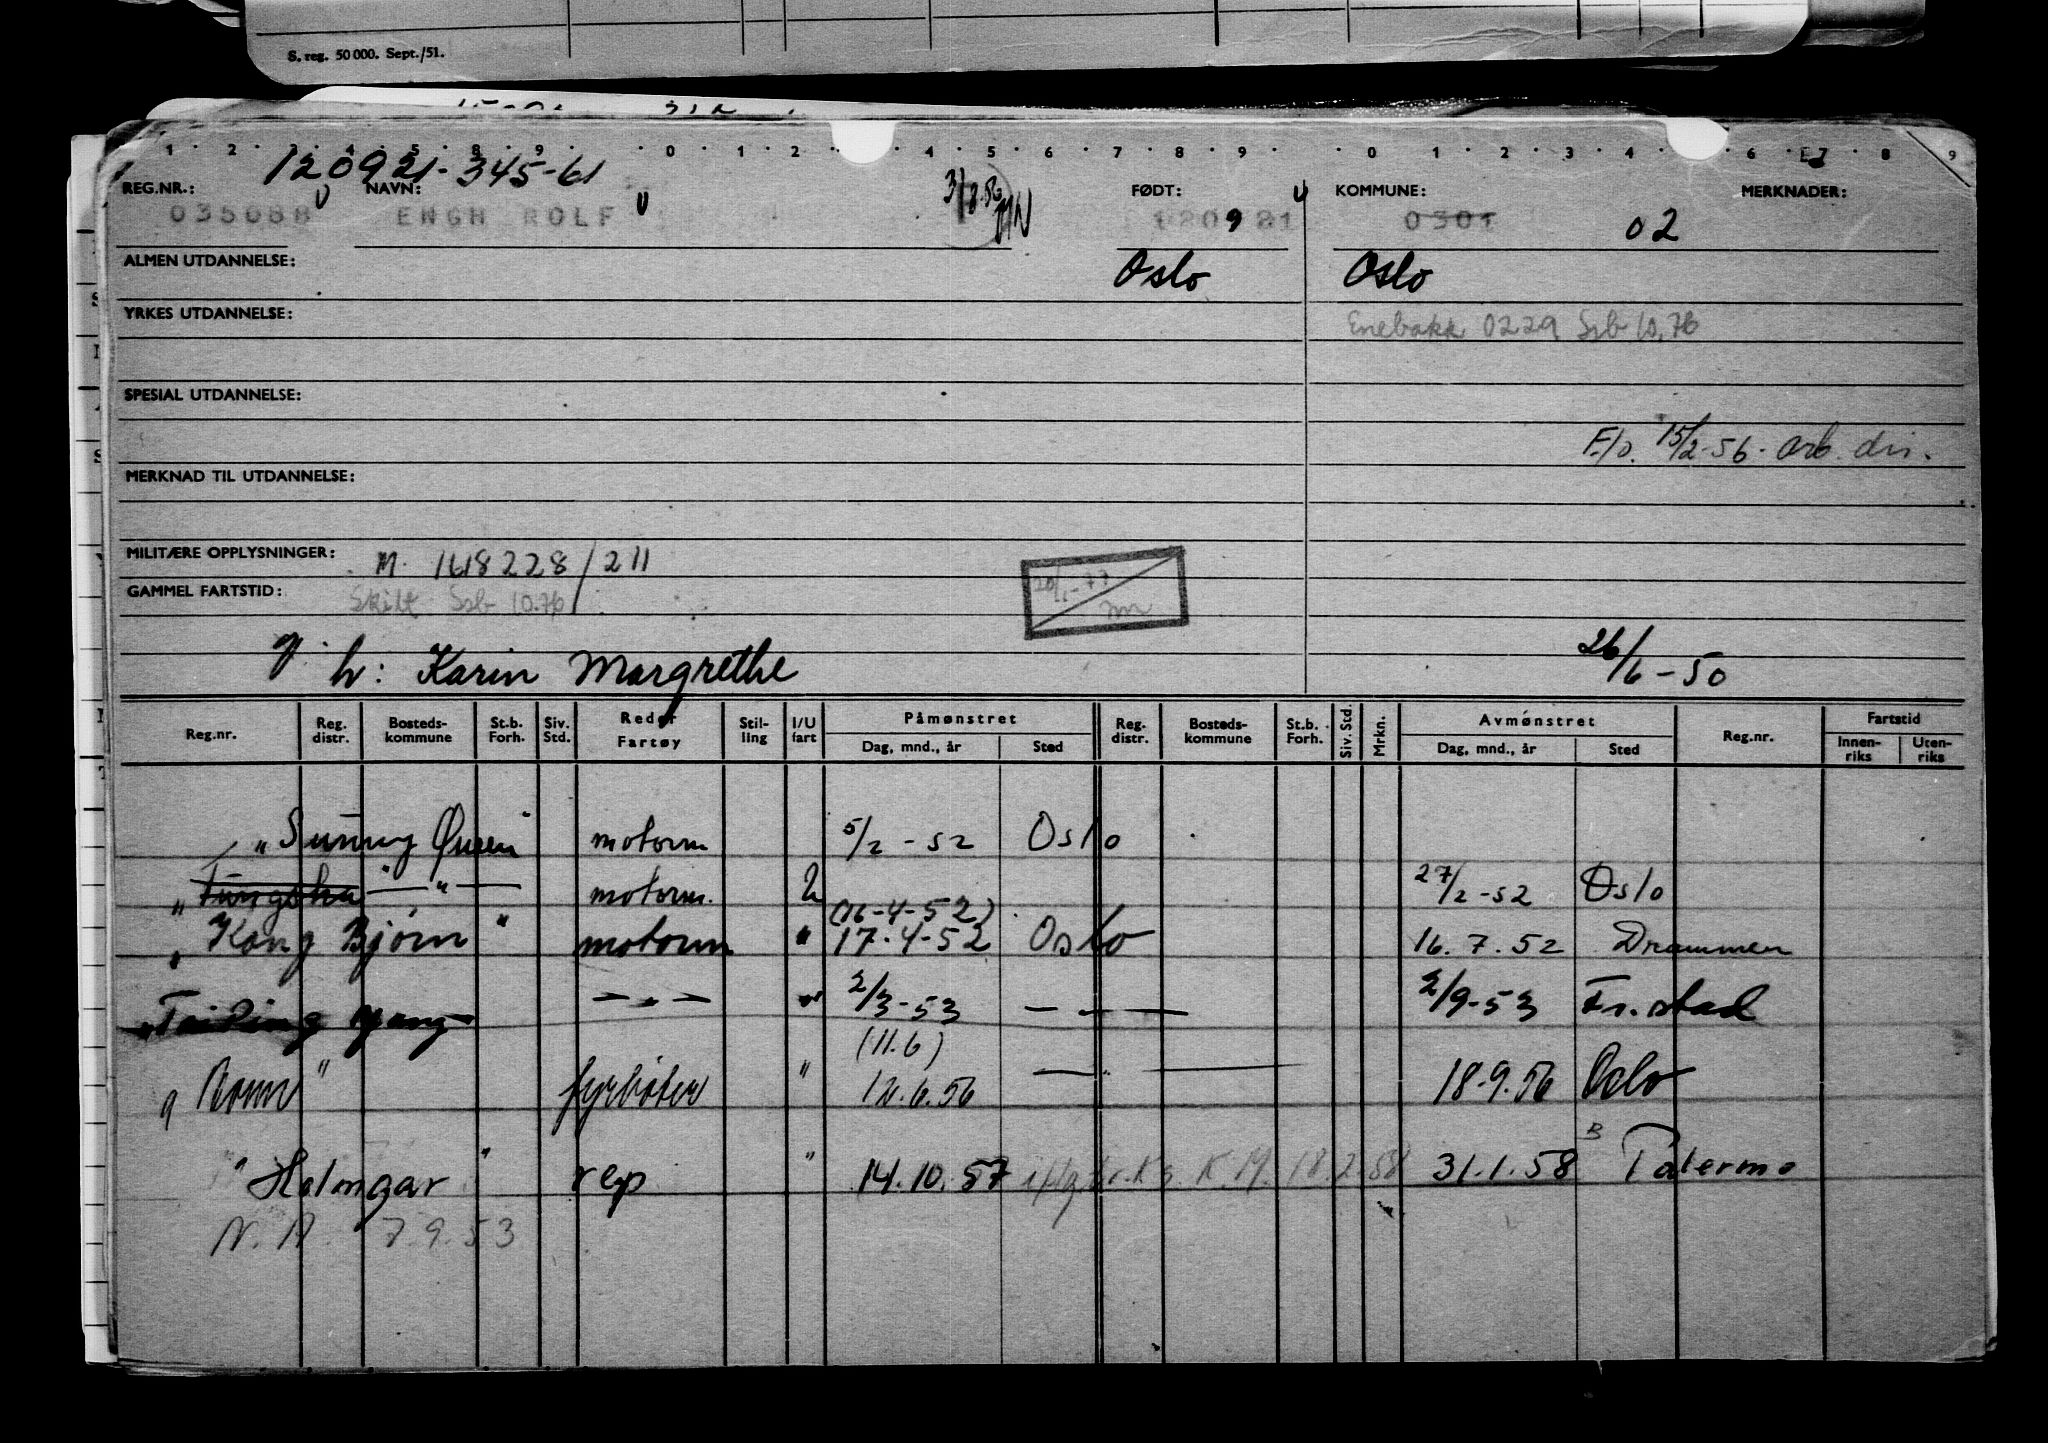 S. reg. 50 000. Sept./51.
1 2 3 4 5 6 7 8 9 0 1 2 4 5 6 7 8 9 0 1 2 3 4 6 7 8 9
120921-345-61
REG.NR.: NAVN: FØDT: KOMMUNE: MERKNADER:
035088 ENGH ROLF 120921 0301 02
ALMEN UTDANNELSE: Oslo Oslo
YRKES UTDANNELSE: Enebakk 0229 Ssb 10.76
SPESIAL UTDANNELSE:
F/o. 15/2-56. arb. dir.
MERKNAD TIL UTDANNELSE:
MILITÆRE OPPLYSNINGER: M. 1618228/211
GAMMEL FARTSTID: Skilt Ssb 10.76
20/1-77
g. h: Karin Margrethe 26/6-50
Reg.nr. Reg. distr. Bosteds-kommune St.b. Forh. Siv. Std. Reder Fartøy Stil-ling I/U fart Påmønstret Dag, mnd., år Sted Reg. distr. Bosteds-kommune St.b. Forh. Siv. Std. Mrkn. Avmønstret Dag, mnd., år Sted Reg.nr. Fartstid Innen-riks Uten-riks
"Sunny Queen" motorm 5/2-52 Oslo
"Fungsha —"— motorm. U 27/2-52 Oslo
(16-4-52)
"Kong Bjørn" motorm " 17-4-52 Oslo 16.7.52 Drammen
"Tai Ping Yang —"— " 2/3-53 —"— 2/9-53 Fr.stad
(11.6)
" fyrbøter " 12.6.56 —"— 18.9.56 Oslo
"Holmgar" rep " 14.10.57 iflg br. Kg. K.M. 18.2.58 31.1.58 Palermo
N.A. 7.9.53